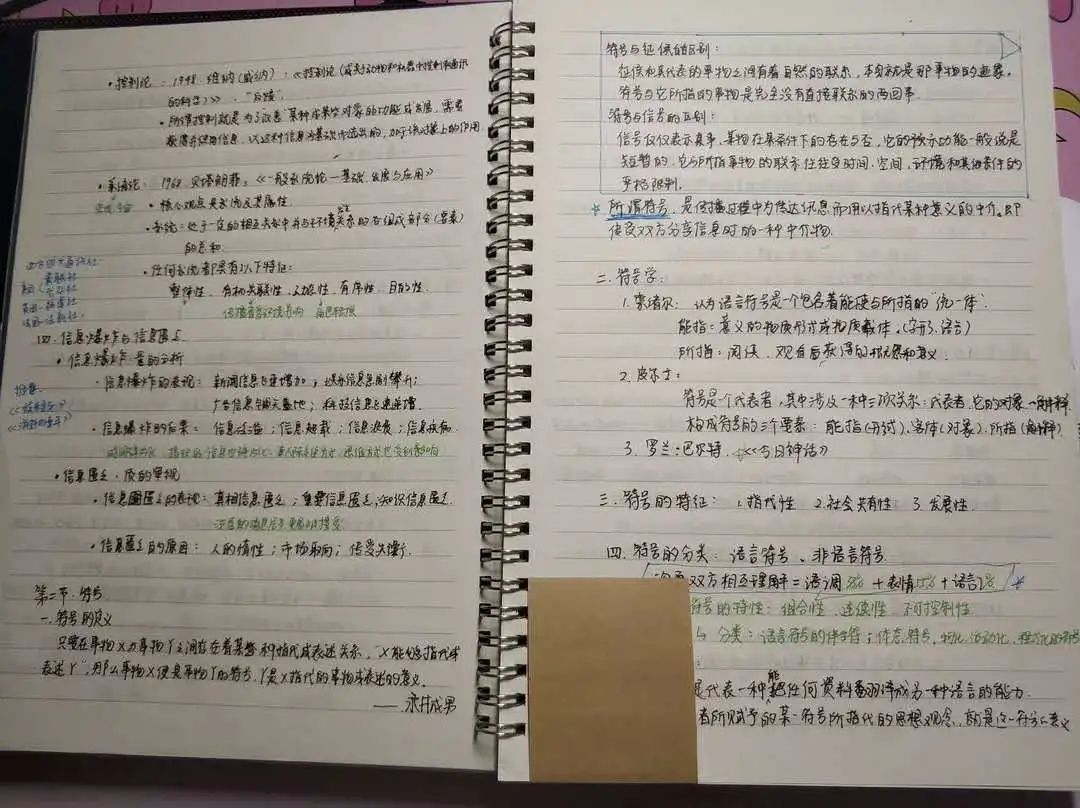 • 控制论：1948 维纳(威纳)：《控制论(或关于动物和机器中控制和通讯
的科学)》."反馈".
• 所谓控制就是为了改善某种或某些对象的功能或发展，需要
获得并使用信息，以这种信息为基础而选出的，加于该对象上的作用
• 系统论：1968 贝塔朗菲：《一般系统论—基础、发展与应用》
• 核心观点是系统及其属性
• 系统：处于一定的相互关系中并与环境发生关系的各组成部分(要素)
的总和.
• 任何系统都具有以下特征：
整体性、有机关联性、动态性、有序性、目的性.
西方四大通讯社
美联社
英国—路透社
法国—法新社
四. 信息爆炸与信息匮乏
• 信息爆炸·量的分析
• 信息爆炸的表现：新闻信息飞速增加；娱乐信息急剧攀升；
广告信息铺天盖地；科技信息飞速递增.
《娱乐至死》
《消逝的童年》
• 信息爆炸的后果：信息泛滥；信息超载；信息浪费；信息疾病
• 信息匮乏·质的审视
• 信息匮乏的表现：真相信息匮乏；重要信息匮乏；知识信息匮乏.
• 信息匮乏的原因：人的惰性；市场取向；传受失衡.
第二节·符号
一. 符号的定义
只要在事物X与事物Y之间存在着某种指代或表述关系，"X能够指代或
表述Y"，那么事物X便是事物Y的符号，Y是X指代的事物或表述的意义.
——永井成男
符号与征候的区别：
征候和其代表的事物之间有着自然的联系，本身就是那事物的迹象.
符号与它所指的事物是完全没有直接联系的两回事.
符号与信号的区别：
信号仅仅表示某事、某物在某条件下的存在与否，它的预示功能一般说是
短暂的，它与所指事物的联系往往受时间、空间、环境和其他条件的
严格限制.
所谓符号，是传播过程中为传达讯息而用以指代某种意义的中介.即
传受双方分享信息时的一种中介物.
二. 符号学：
1. 索绪尔：认为语言符号是一个包含着能指与所指的"统一体".
能指：意义的物质形式或物质载体.(字形、语言)
所指：阅读、观看后获得的概念和意义.
2. 皮尔士：
符号是一个代表者，其中涉及一种三元关系：代表者、它的对象、解释
构成符号的三个要素：能指(形式)、客体(对象)、所指(解释)
3. 罗兰·巴尔特《今日神话》
三. 符号的特征：1. 指代性 2. 社会共有性 3. 发展性.
四. 符号的分类：语言符号、非语言符号
双方相互理解=语调38%+表情55%+语言7%
符号的特性：组合性、连续性、不可控制性
分类：语言符号的伴生符；体态符号；物化、活动化、程式化的符号
是代表一种能把任何资料翻译成另一种语言的能力.
者所赋予的某一符号所指代的思想观念，就是这一符号之意义